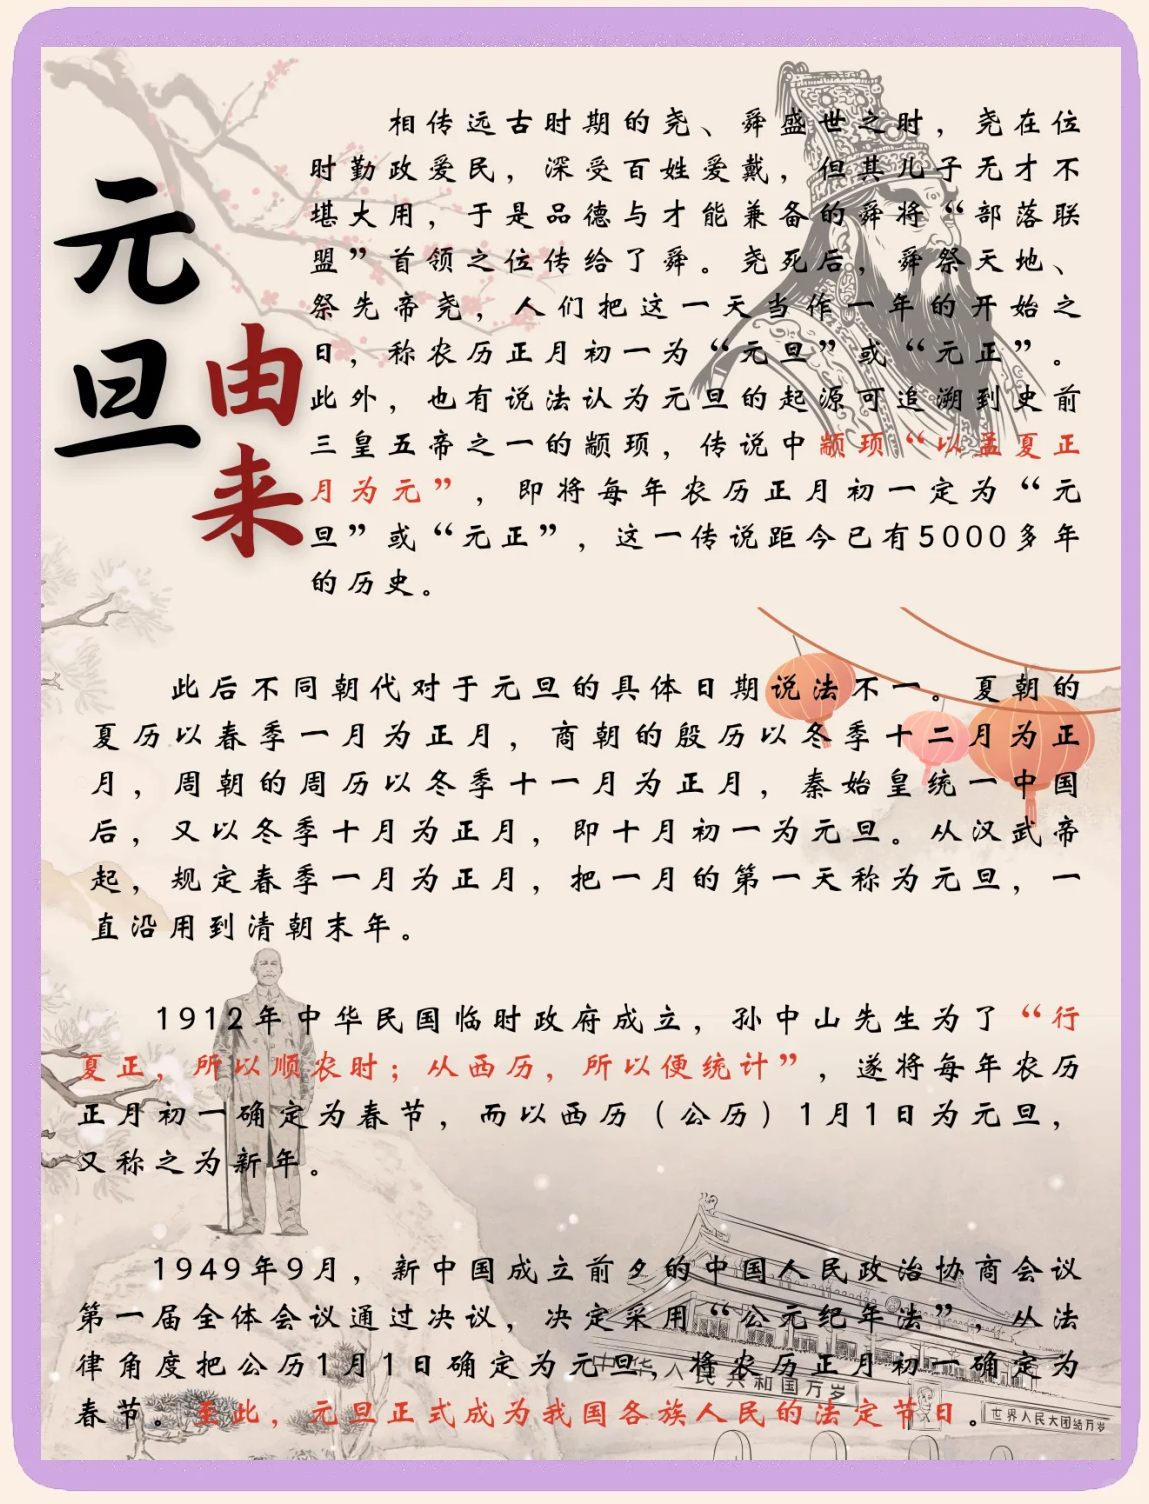 元旦
由来
相传远古时期的尧、舜盛世之时，尧在位
时勤政爱民，深受百姓爱戴，但其儿子无才不
堪大用，于是品德与才能兼备的舜将“部落联
盟”首领之位传给了舜。尧死后，舜祭天地、
祭先帝尧，人们把这一天当作一年的开始之
日，称农历正月初一为“元旦”或“元正”。
此外，也有说法认为元旦的起源可追溯到史前
三皇五帝之一的颛顼，传说中颛顼“以孟夏正
月为元”，即将每年农历正月初一定为“元
旦”或“元正”，这一传说距今已有5000多年
的历史。
此后不同朝代对于元旦的具体日期说法不一。夏朝的
夏历以春季一月为正月，商朝的殷历以冬季十二月为正
月，周朝的周历以冬季十一月为正月，秦始皇统一中国
后，又以冬季十月为正月，即十月初一为元旦。从汉武帝
起，规定春季一月为正月，把一月的第一天称为元旦，一
直沿用到清朝末年。
1912年中华民国临时政府成立，孙中山先生为了“行
夏正，所以顺农时；从西历，所以便统计”，遂将每年农历
正月初一确定为春节，而以西历（公历）1月1日为元旦，
又称之为新年。
1949年9月，新中国成立前夕的中国人民政治协商会议
第一届全体会议通过决议，决定采用“公元纪年法”，从法
律角度把公历1月1日确定为元旦，将农历正月初一确定为
春节。至此，元旦正式成为我国各族人民的法定节日。
中华人民共和国万岁
世界人民大团结万岁